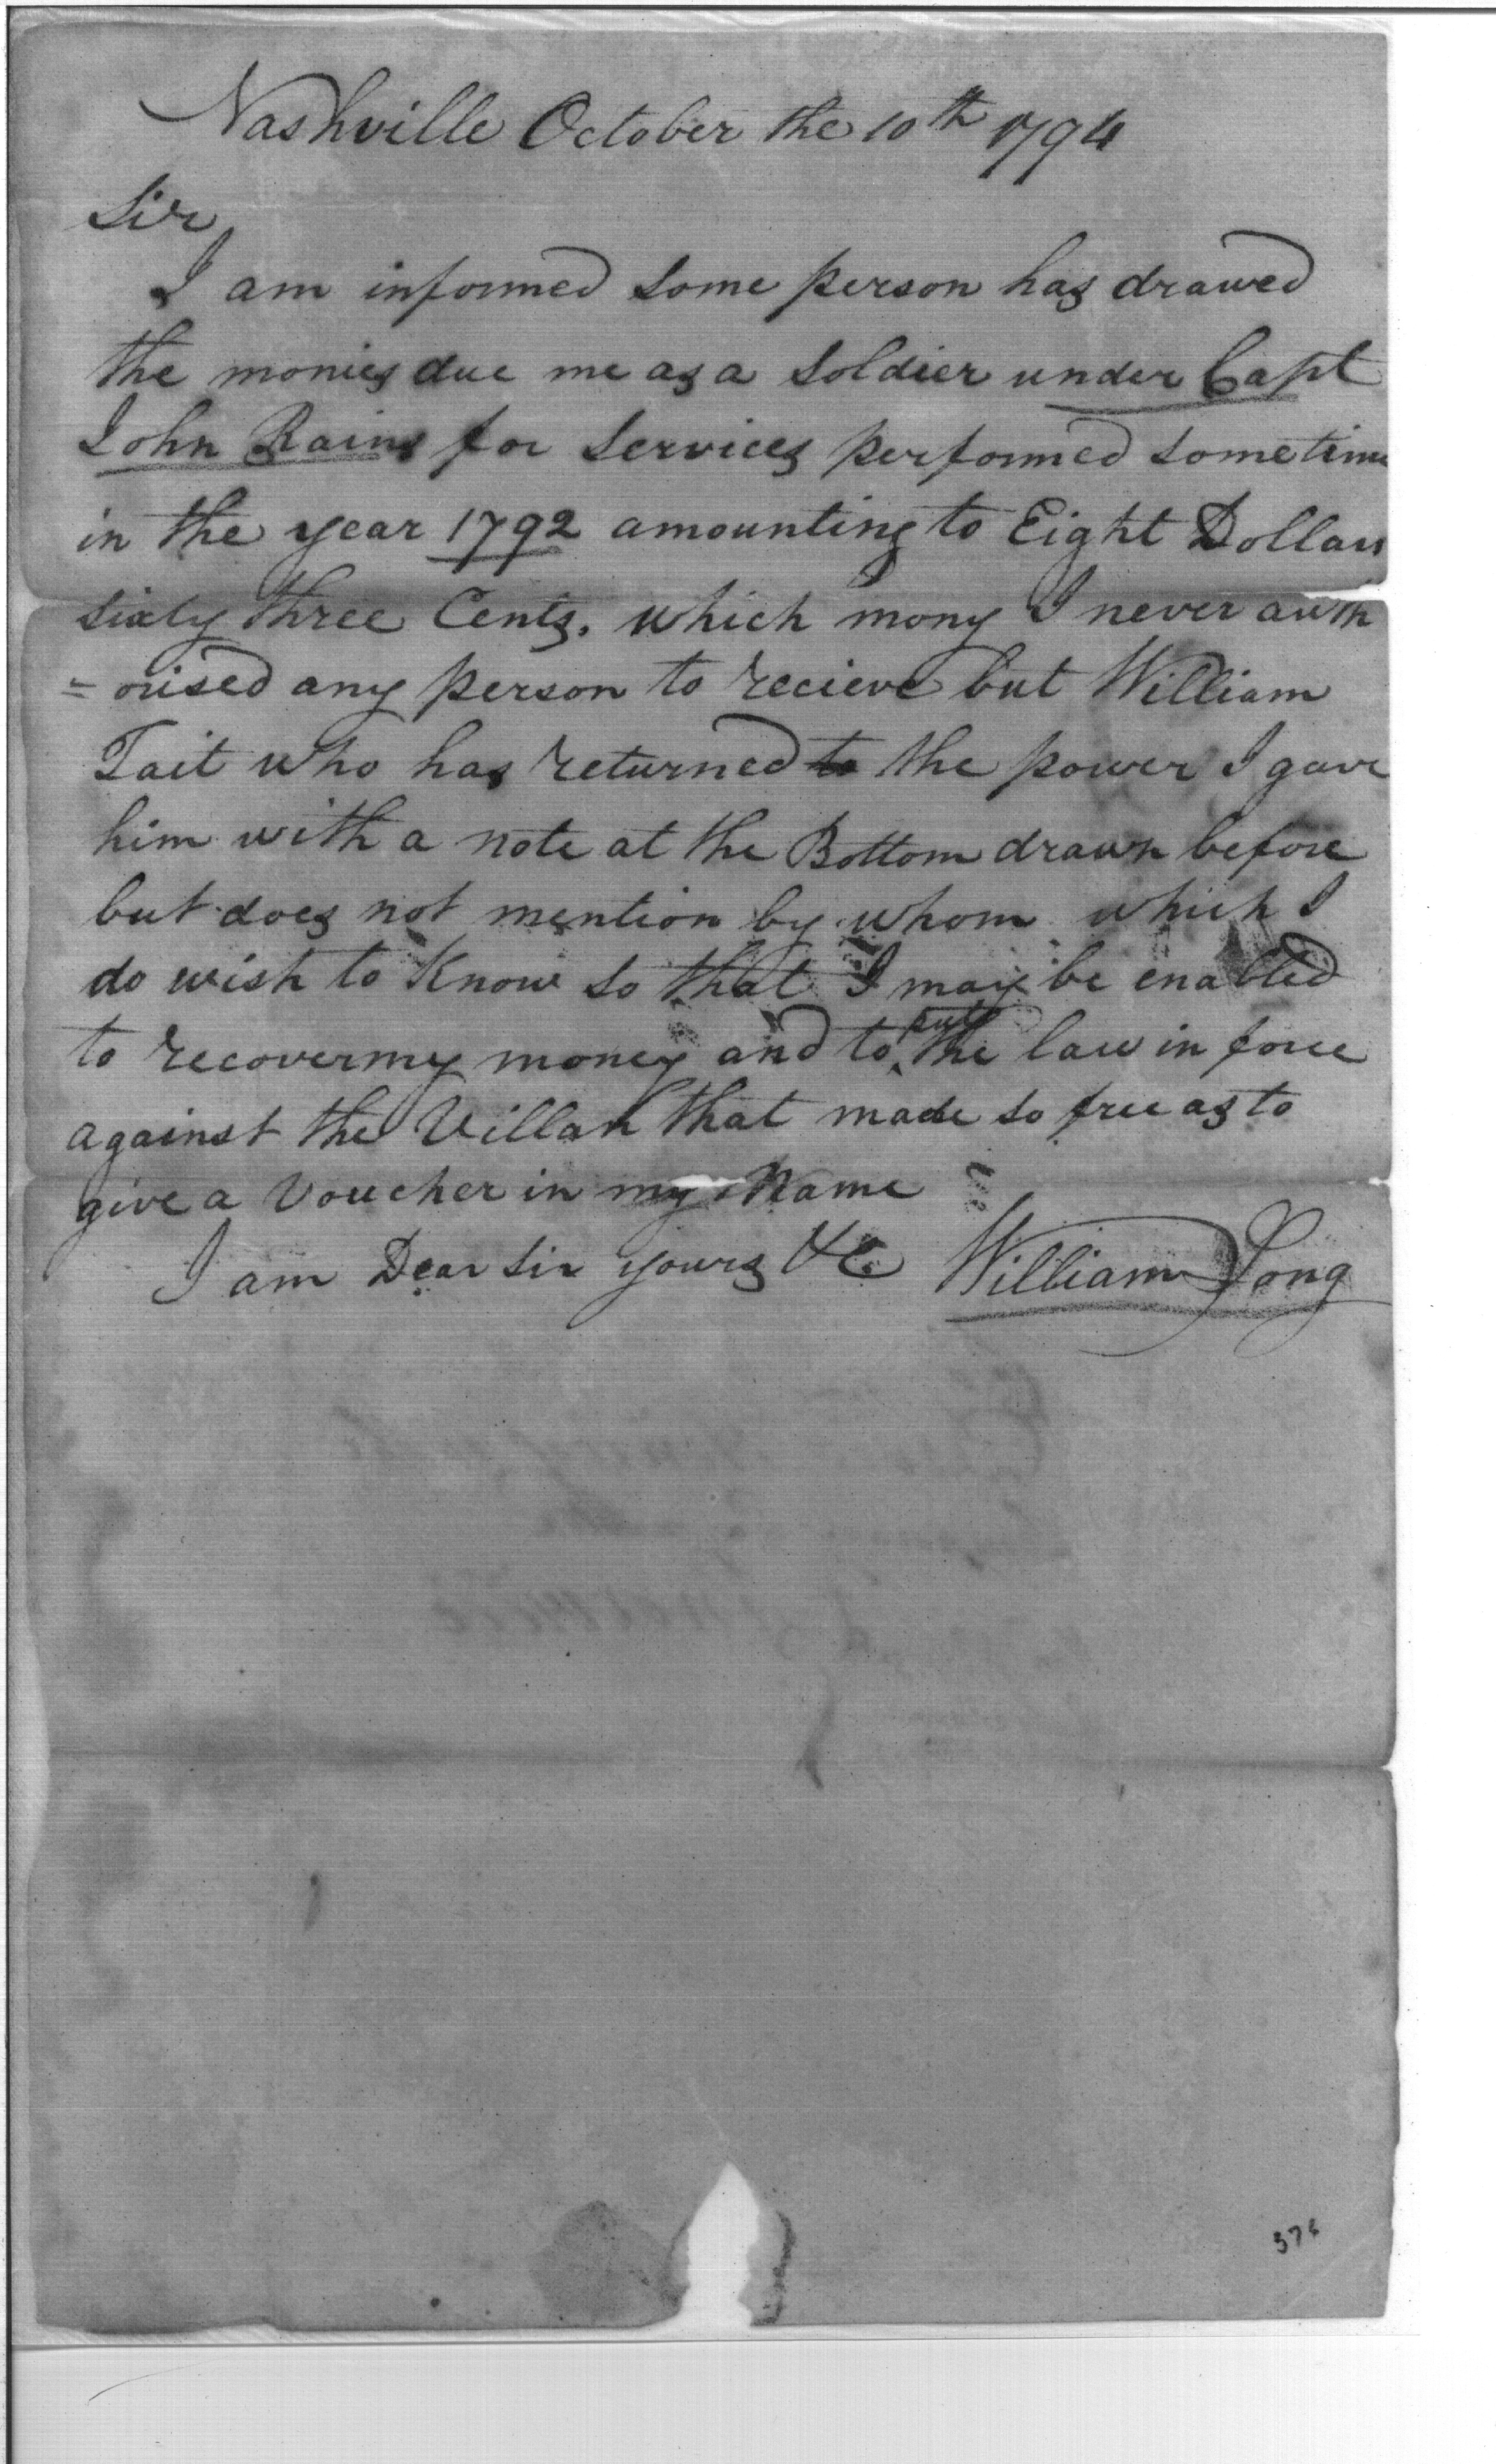 Nashville October the 10th 1794
Sir
I am informed some person has drawed
the monies due me as a Soldier under Capt
John Rains for Services performed sometime
in the year 1792 amounting to Eight Dollars
sixty three Cents. which mony I never auth
=orised any person to recieve but William
Tait who has returned to the power I gave
him with a note at the Bottom drawn before
but does not mention by whom which I
do wish to Know so that I may be enabled
to recover my money and to put the law in force
against the Villan that made so free as to
give a Voucher in my Name
I am Dear Sir yours &c William Long